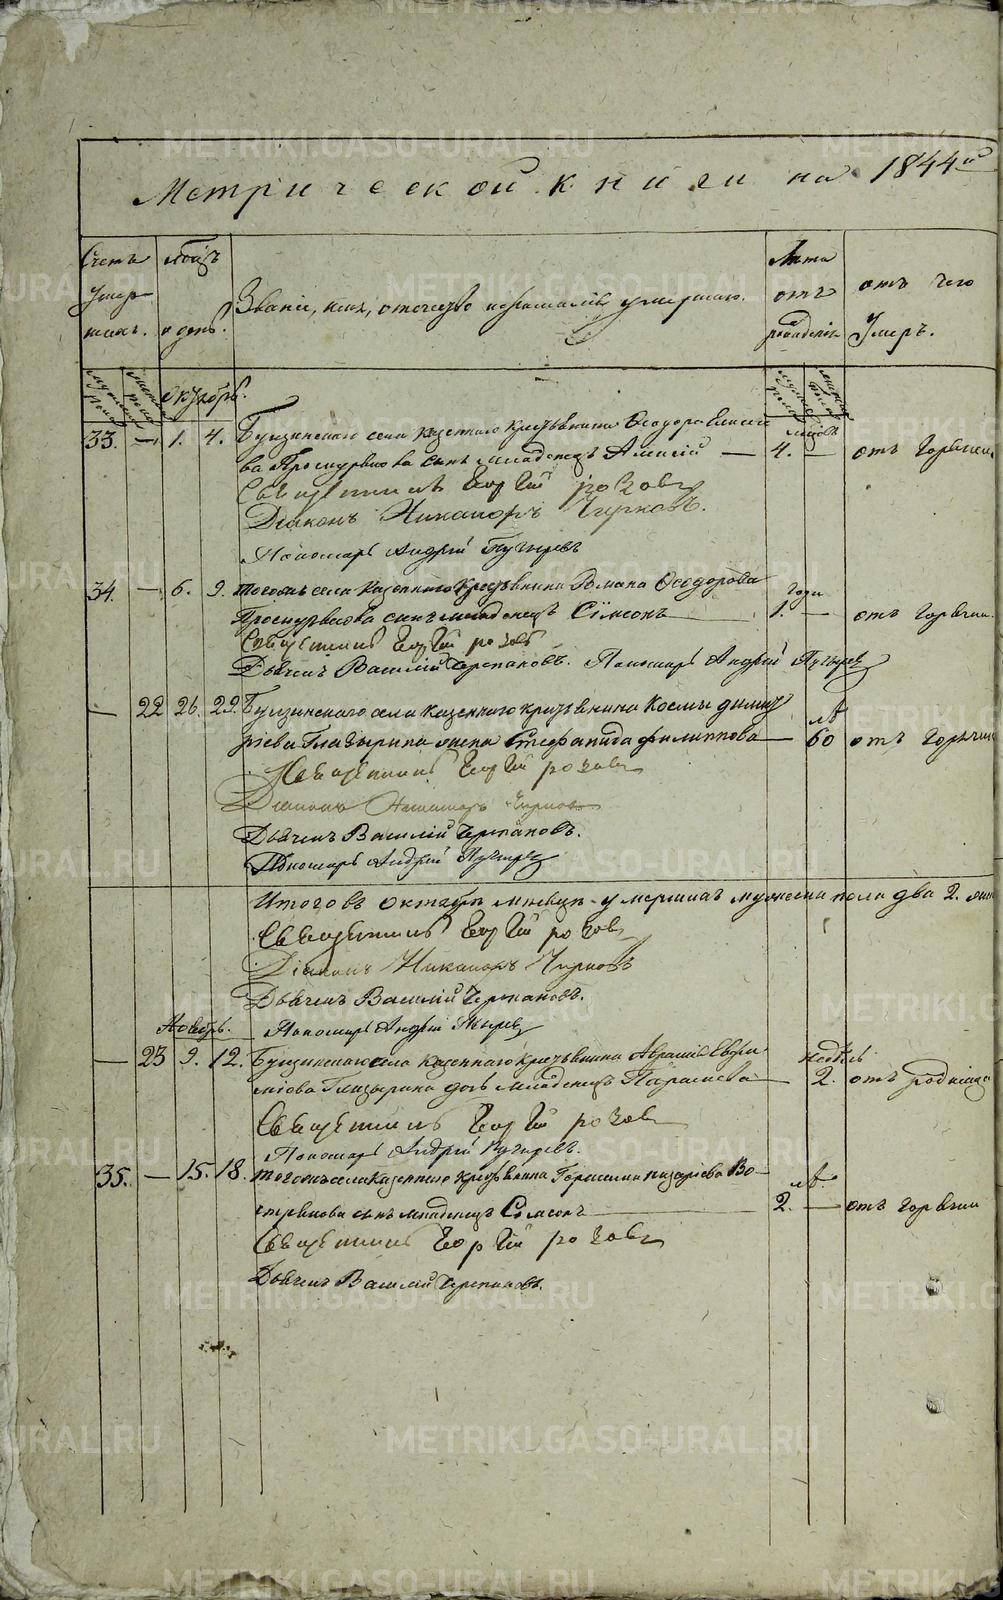 Метрической книги на 1844й
Счетъ умершихъ.
Мѣсяцъ и день.
Званіе, имя, отечество и фамилія умершаго.
Лѣта отъ рожденія
отъ чего умеръ.
Октябрь.
33. — 1. 4. Бугинскаго села казеннаго крестьянина Ѳеодора Елисее
ва Проскурякова сынъ младенецъ Алексій — 4. — отъ горячки
Священникъ Георгій розовъ
Діаконъ Никаноръ Чирковъ.
Пономарь Андрей Пузыревъ
34. — 6. 9. тогожъ села казеннаго крестьянина Романа Ѳеодорова годъ
Проскурякова сынъ младенецъ Сѵмеонъ 1. — отъ горячки
Священникъ Георгій розовъ
Дьячекъ Василій Черепановъ. Пономарь Андрей Пузыревъ
— 22 26. 29. Бугинскаго села казеннаго крестьянина Космы димит лѣ
ріева Глазырина жена Стефанида филиппова — 60 отъ горячки
Священникъ Георгій розовъ
Діаконъ Никаноръ Чирковъ
Дьячекъ Василій Черепановъ.
Пономарь Андрей Пузыревъ
Итого въ октябрѣ мѣсяцѣ умершихъ мужеска пола два 2.
Священникъ Георгій розовъ
Діаконъ Никаноръ Чирковъ
Дьячекъ Василій Черепановъ.
Ноябрь. Пономарь Андрей Пузыревъ
— 23 9. 12. Бугинскаго села казеннаго крестьянина Авраамія Евѳи недѣль
міева Глазырина дочь младенецъ Параскева — 2. отъ родимца
Священникъ Георгій розовъ
Пономарь Андрей Пузыревъ.
35. — 15. 18. тогожъ села казеннаго крестьянина Герасима назарьева Во лѣ
стрякова сынъ младенецъ Сѵмеонъ 2. — отъ горячки
Священникъ Георгій розовъ
Дьячекъ Василій Черепановъ.
METRIKI.GASO-URAL.RU